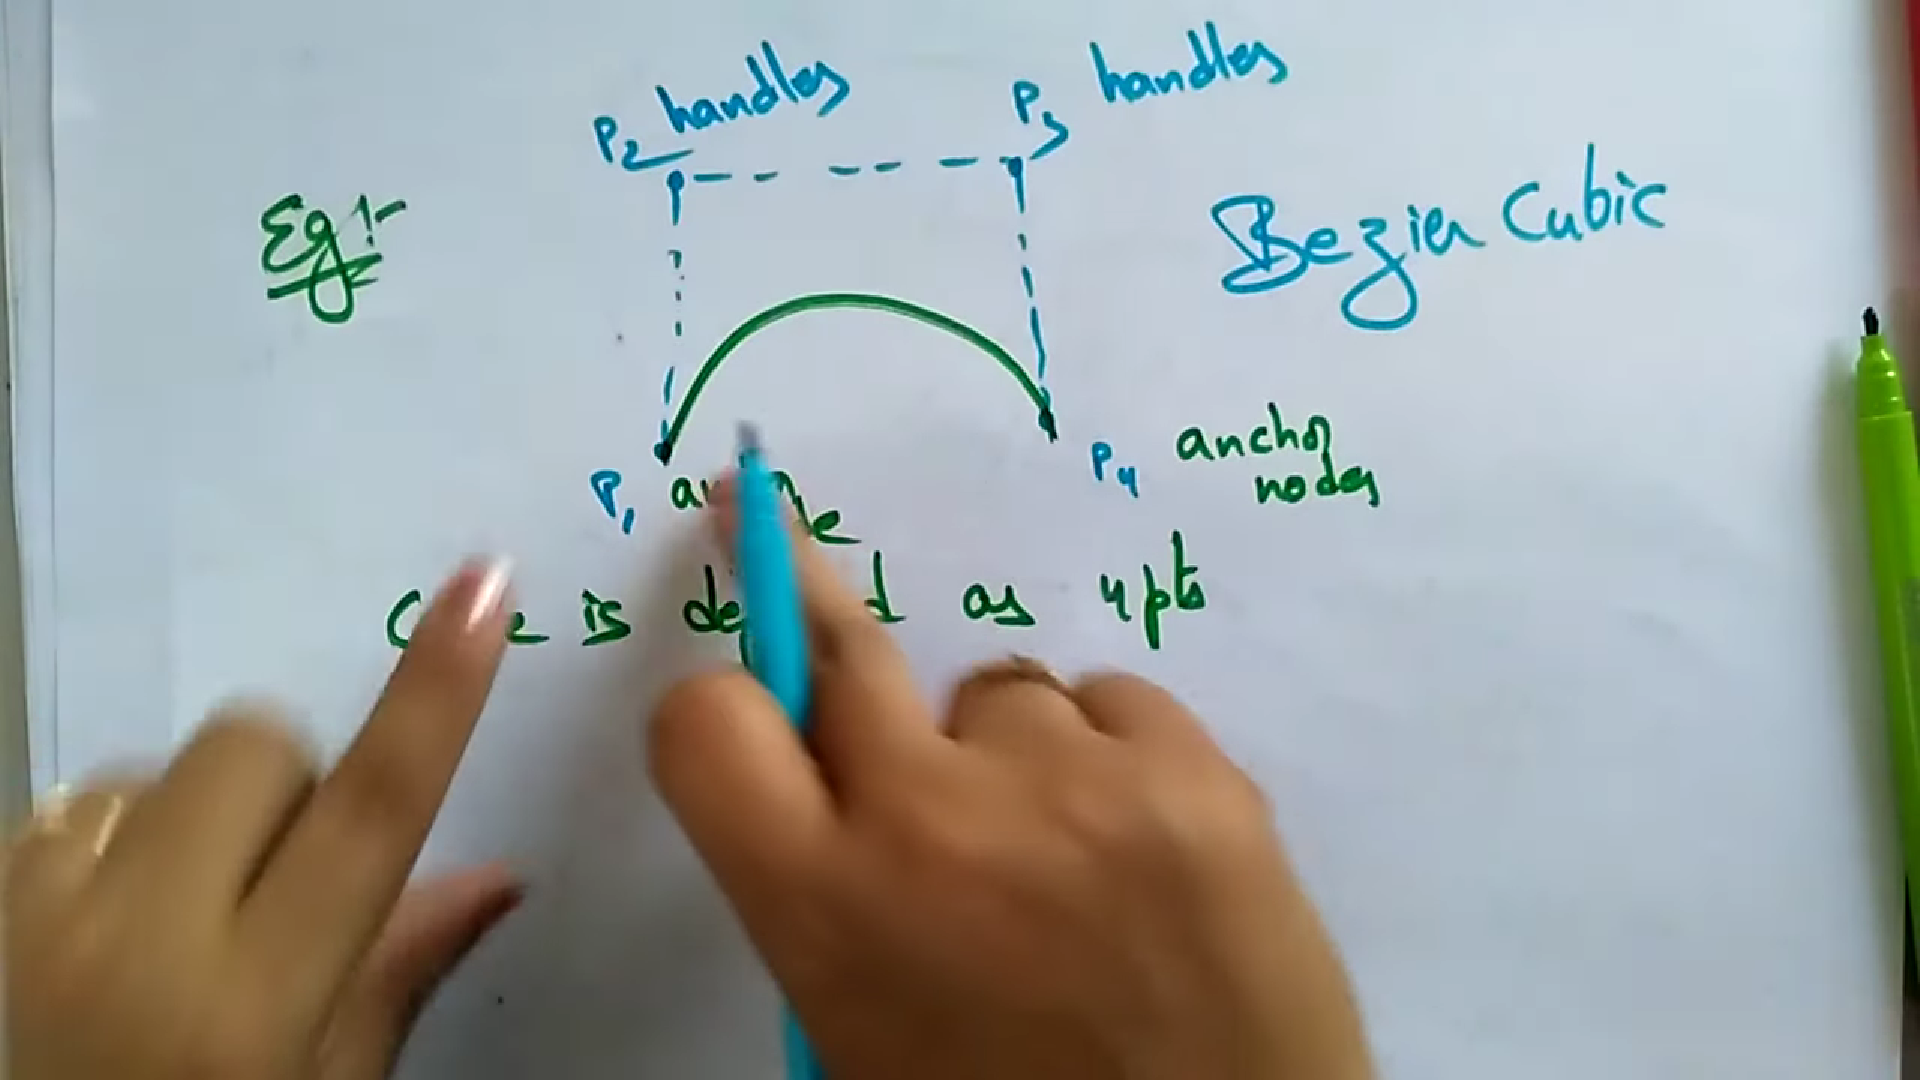 P2 handles
P3 handles
Eg:-
Bezier Cubic
P1
P4 anchor
nodes
is as 4 pts